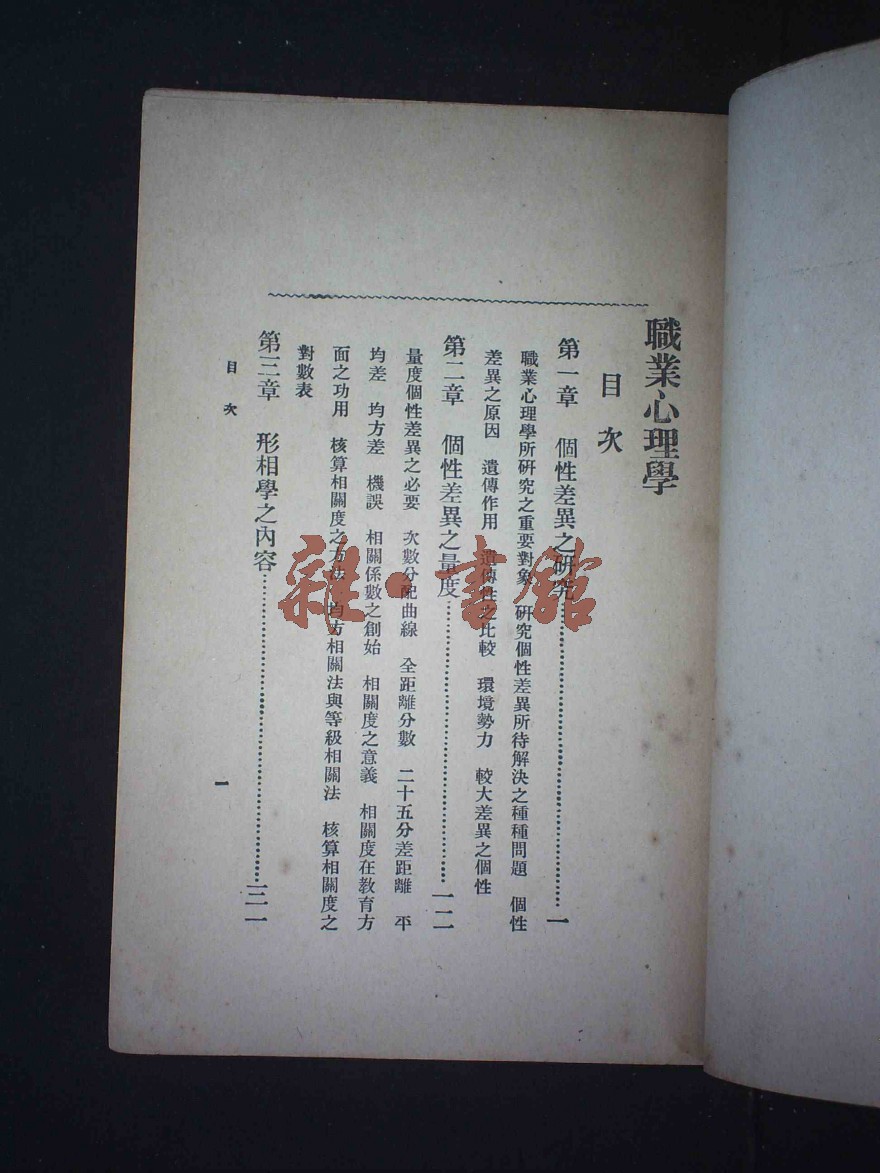 職業心理學
目次
第一章　個性差異之研究……一
職業心理學所研究之重要對象　研究個性差異所待解決之種種問題　個性
差異之原因　遺傳作用　遺傳性之比較　環境勢力　較大差異之個性
第二章　個性差異之量度……一二
量度個性差異之必要　次數分配曲線　全距離分數　二十五分差距離　平
均差　均方差　機誤　相關係數之創始　相關度之意義　相關度在教育方
面之功用　核算相關度之方法　均方相關法與等級相關法　核算相關度之
對數表
第三章　形相學之內容……三一
目次
一
雜·書館